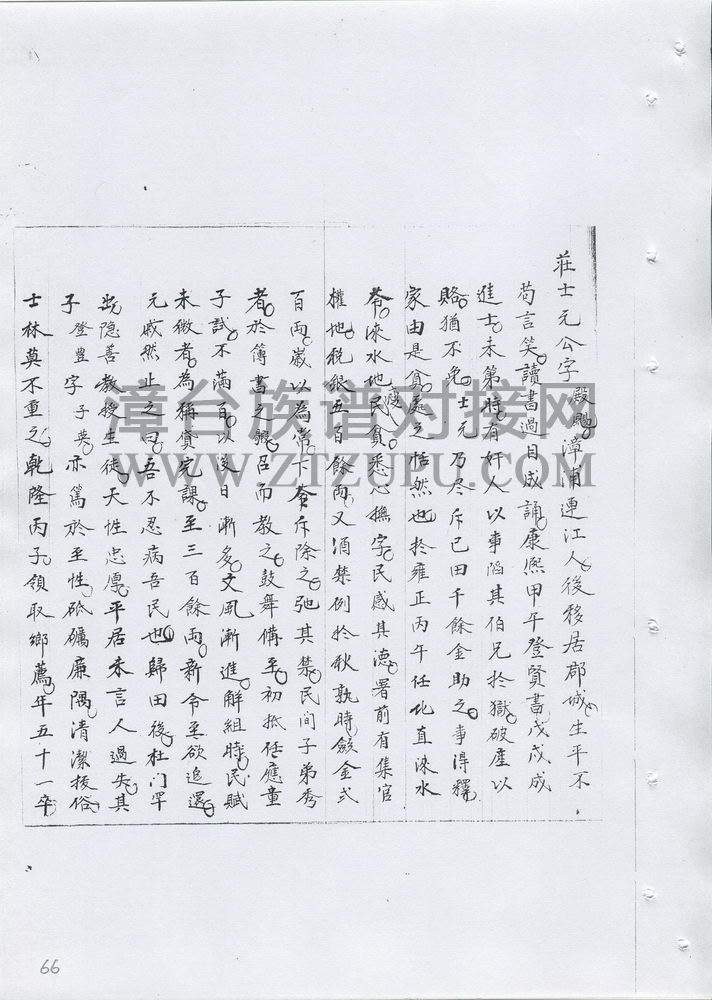 莊士元公字殿颺。漳浦連江人。後移居郡城。生平不
苟言笑。讀書過目成誦。康熙甲午登賢書。戊戌成
進士。未第時。有奸人以事陷其伯兄於獄。破產以
賂。猶不免。士元乃尽斥己田千餘金助之。事得釋。
家由是貧。处之恬然也。於雍正丙午任化直淶水
令。淶水地瘠民貧。悉心撫字。民感其德。署前有集官
權地稅銀五百餘兩。又酒禁例於秋熟時歛金弍
百兩。歲以為常。下令斥除之。弛其禁。民間子弟秀
者。於簿書之暇。召而教之。鼓舞備至。初抵任應童
子試。不滿百。以後日漸多。文風漸進。解組時。民賦
未徵者。為稱貸完課。至三百餘兩。新令至欲追還。
元戚然止之曰。吾不忍病吾民也。歸田後。杜门罕
出。隐善教授生徒。天性忠厚。平居未言人過失。其
子登豊字子英。亦篤於至性。砥礪廉隅。清潔拔俗。
士林莫不重之。乾隆丙子。領取鄉薦。年五十一卒
漳台族谱对接网
WWW.ZTZUPU.COM
66